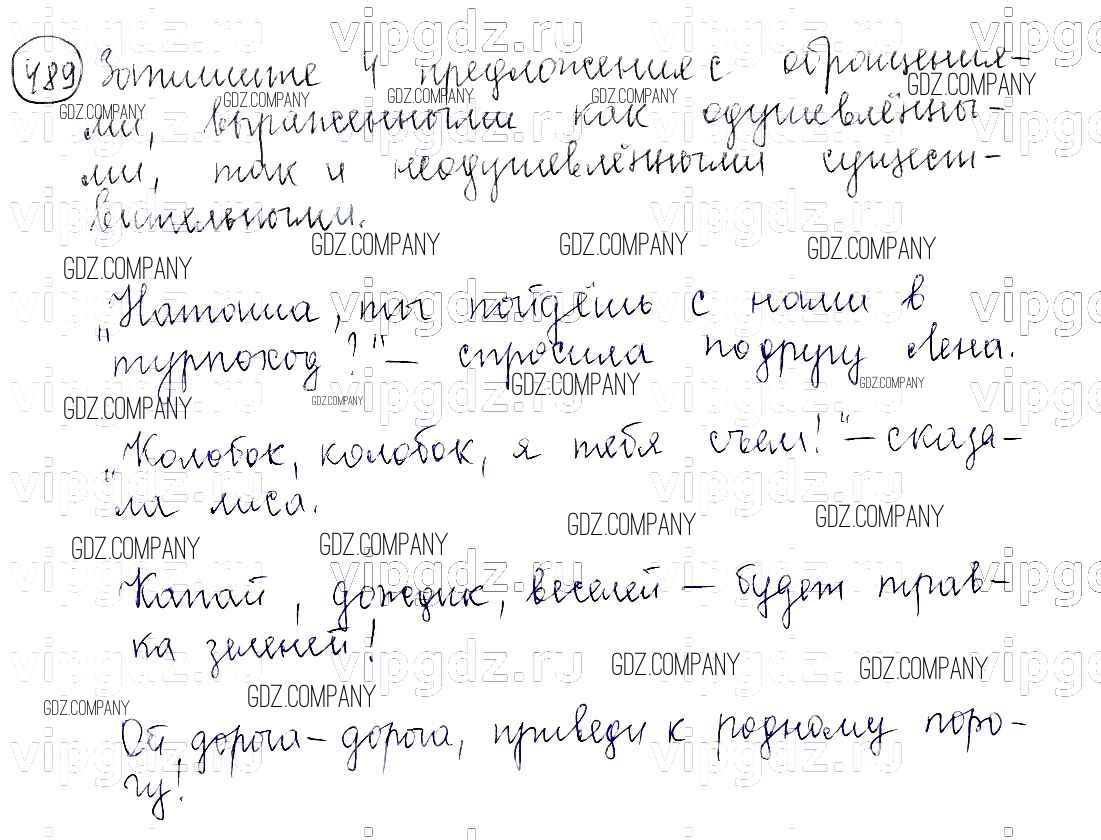 489 Запишите 4 предложения с обращения-
ми, выраженными как одушевлённы-
ми, так и неодушевлёнными сущест-
вительными.
"Наташа, ты пойдёшь с нами в
турпоход?" – спросила подругу Лена.
"Колобок, колобок, я тебя съем!" – сказа-
ла лиса.
Капай, дождик, веселей – будет трав-
ка зеленей!
Ой, дорога-дорога, приведи к родному поро-
гу!